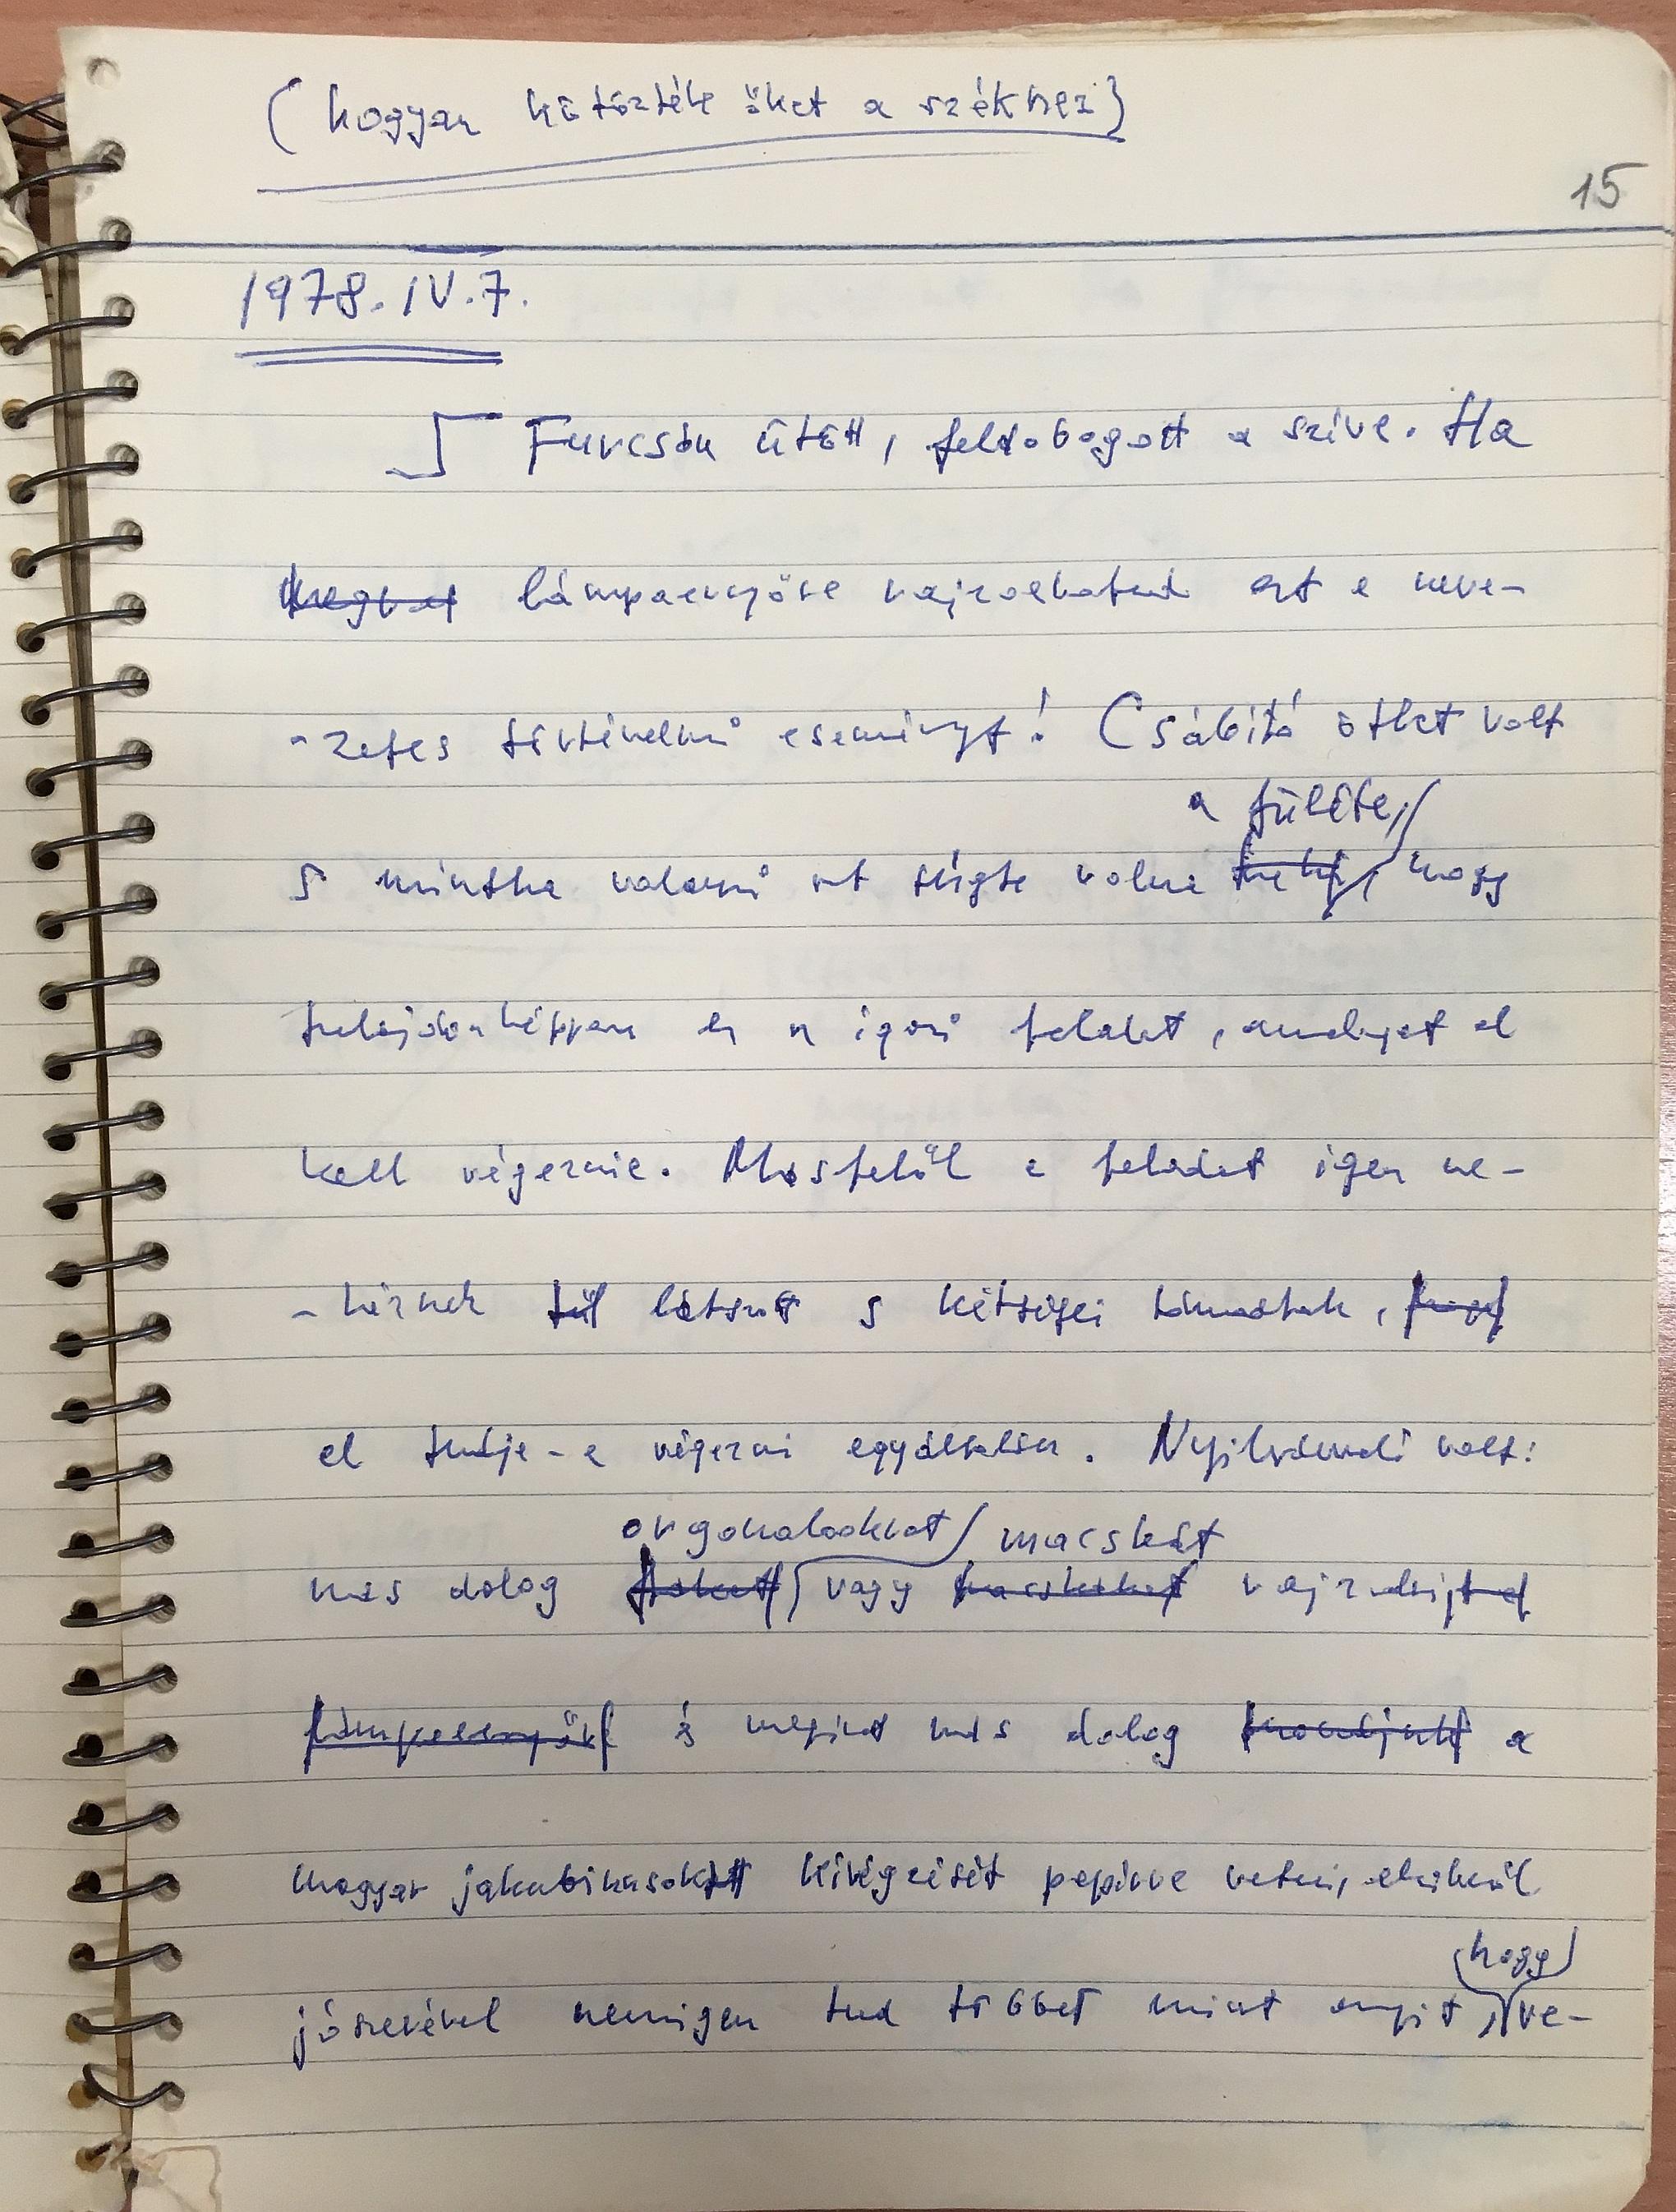 (hogyan kötözték őket a székhez)
15
1978. IV. 7.
Furcsán ütött, feldobogott a szíve. Ha
lámpaernyőre rajzolhatná ezt a neve-
-zetes történelmi eseményt! Csábító ötlet volt
a fülébe,
s mintha valami azt súgta volna hogy
tulajdonképpen ez az igazi feladat, amelyet el
kell végeznie. Másfelől a feladat igen ne-
-héznek látszott s kétségei támadtak,
el tudja-e végezni egyáltalán. Nyilvánvaló volt:
orgonabokrot macskát
más dolog vagy rajzolni
és megint más dolog a
magyar jakobinusok kivégzését papírra vetni, akikről
hogy
jószerével nemigen tud többet mint annyit, ve-